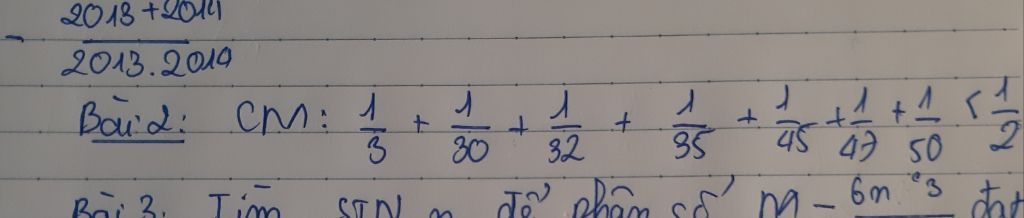 - 2013 + 2014 / 2013.2014
Bài 2: CM: 1/3 + 1/30 + 1/32 + 1/35 + 1/45 + 1/47 + 1/50 < 1/2
Bài 3. Tìm STN n để phân số M = 6n 3 đạt